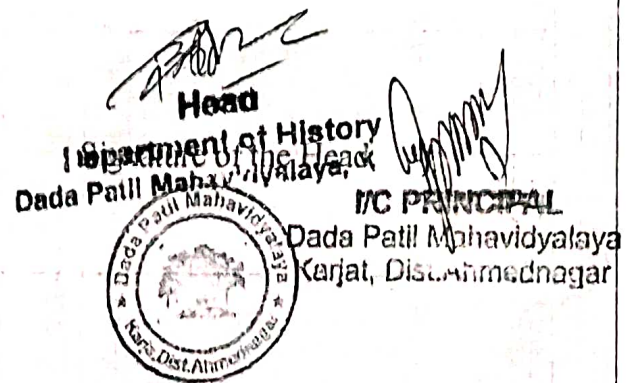 Head
Department of History
Signature of the Head
Dada Patil Mahavidyalaya, K
I/C PRINCIPAL
Dada Patil Mahavidyalaya
Karjat, Dist.Ahmednagar
★ Dada Patil Mahavidyalaya ★
Karjat, Dist. Ahmednagar